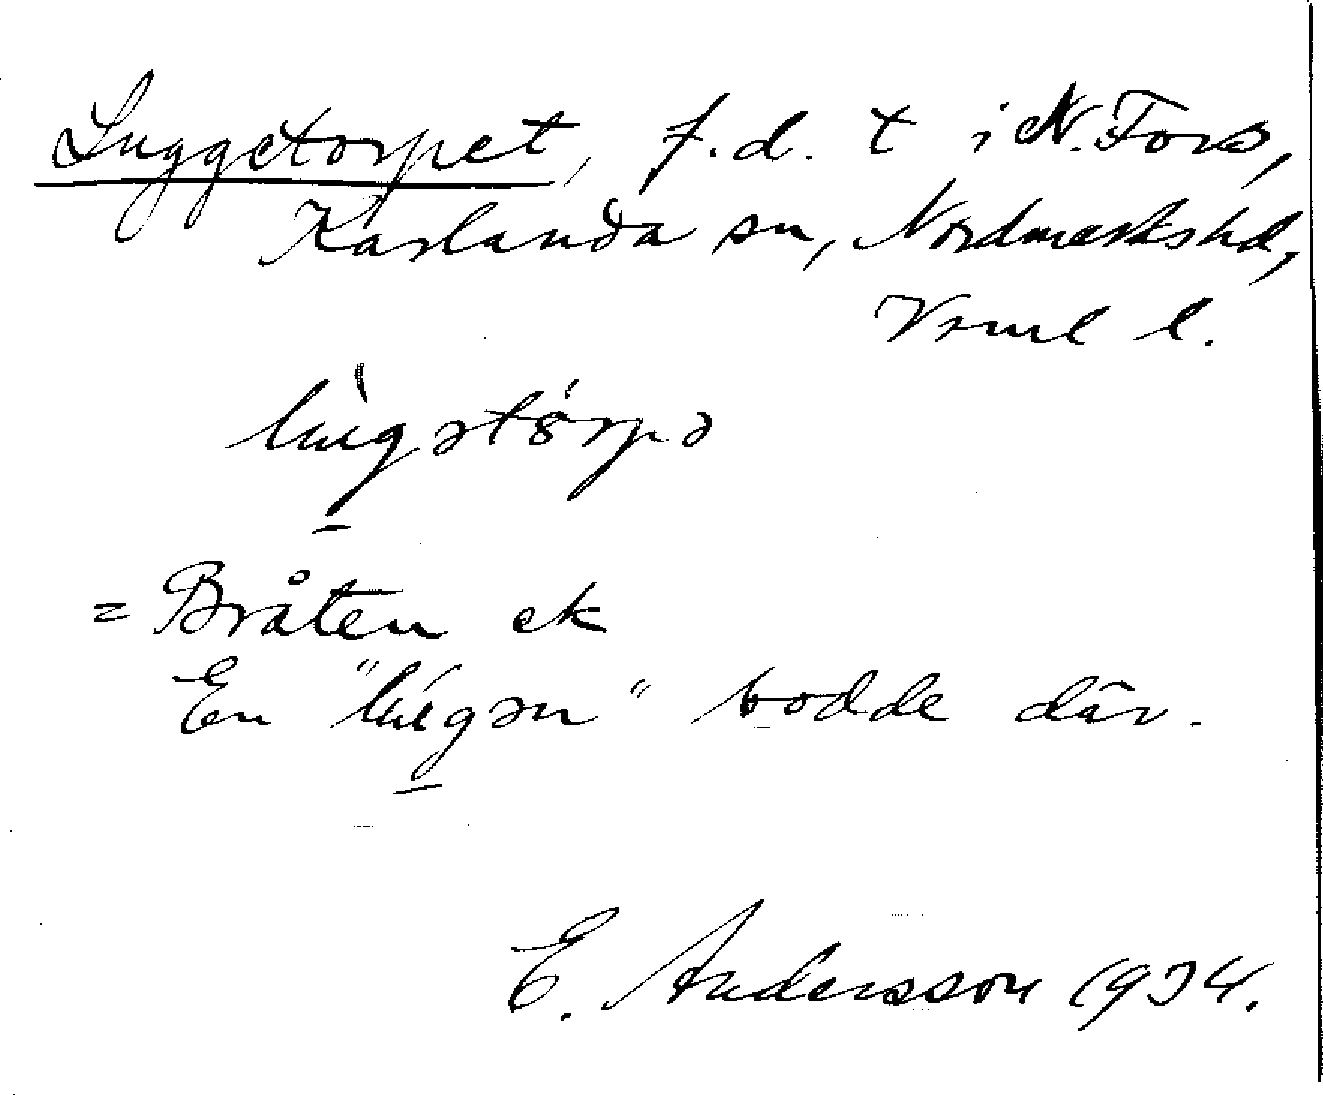 Luggetorpet, f.d. t i N. Fors,
Karlanda sn, Nordmarkshd,
Vrml l.
= Bråten ek
En " " bodde där.
E. Andersson 1934.